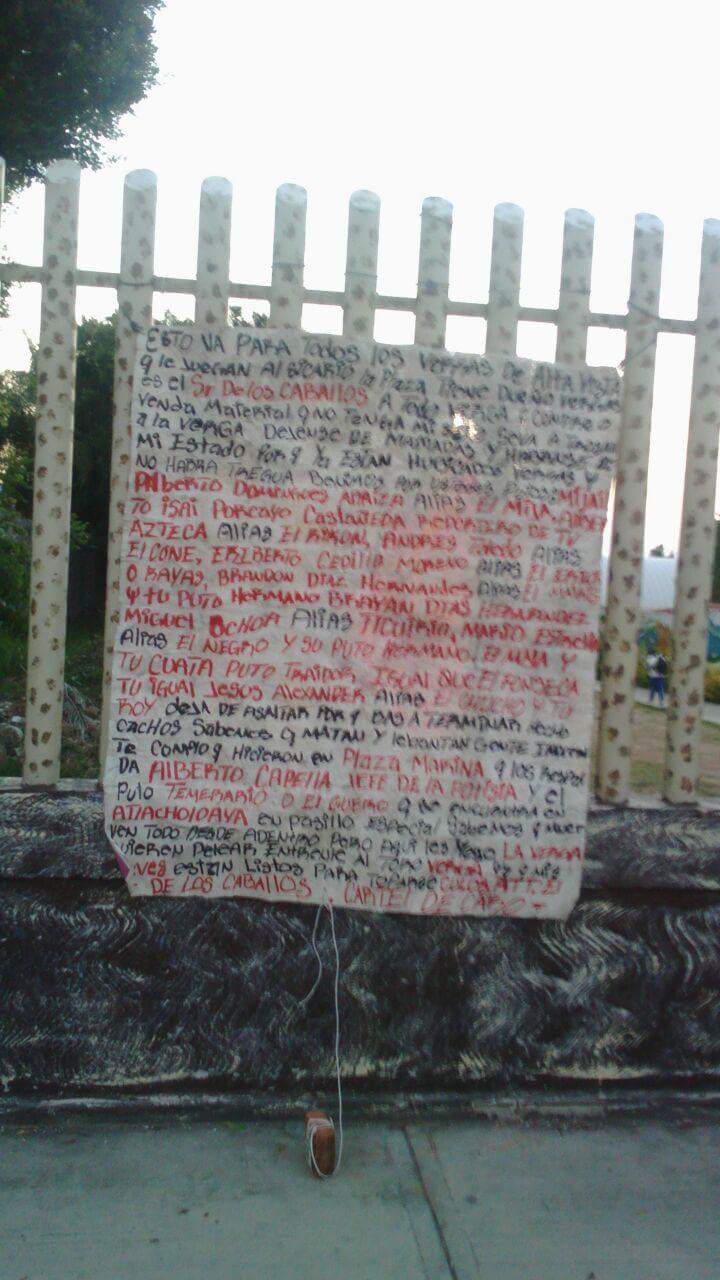 ESTO VA PARA TODOS LOS VERGAS DE ALTA VISTA
Q LE JUEGAN AL SICARIO LA PLAZA TIENE DUEÑO VERGAS
ES EL Sr DE LOS CABALLOS A TODO VERGA Q COMPRE O
VENDA MATERIAL Q NO TENGA MI SE VA A
A LA VERGA DEJENSE DE MAMADAS Y
MI ESTADO POR Q YA ESTAN UBICADOS VERGAS Y
NO HABRA TREGUA BENIMOS POR USTEDES
ALBERTO DOMINGUES ARRIZA ALIAS EL MIJA,
TO ISAI PORCAYO CASTAÑEDA REPORTERO DE TV
AZTECA ALIAS EL, ANDRES TOLEDO ALIAS
EL CONE, ERIBERTO CEDILLO MORENO ALIAS EL
O RAYAS, BRANDON DIAZ HERNANDES ALIAS EL
Y TU PUTO HERMANO BRAYAN DIAS HERNANDEZ
MIGUEL OCHOA ALIAS, MARIO ESTRELLA
ALIAS EL NEGRO Y SU PUTO HERMANO. EL MAYA Y
TU CUATA PUTO TRAIDOR, IGUAL QUE EL FONSECA
TU IGUAL JESUS ALEXANDER ALIAS EL Y TU
ROY DEJA DE ASALTAR POR Q BAS A TERMINAR
CACHOS SABEMOS Q MATAN Y LEBANTAN GENTE
TE COMO Q HICIERON EN PLAZA MARINA Q LOS RESPAL
DA ALBERTO CAPELLA JEFE DE LA POLISIA Y EL
PUTO TEMERARIO O EL GUERO Q SE ENCUENTRA EN
ATLACHOLOAYA EN PASILLO ESPECIAL SABEMOS Q MUEY
VEN TODO DESDE ADENTRO PERO AQUI LES LA VERGA
QIEREN PELEAR ENTRENLE AL TORO
ESTAN LISTOS PARA CULOS ATT: EL
DE LOS CABALLOS - CARTEL DE -